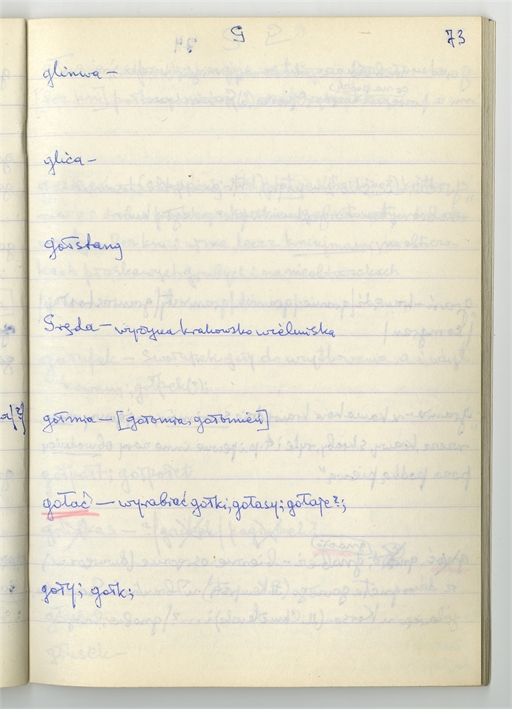 G 73
glinwa –
glica –
gołstang
Gręda – wyżyna krakowsko wieluńska
gołmia – [gołomia, gołomień]
gołać – wyrabiać gołki, gołasy; gołaje?;
goły; gołk;